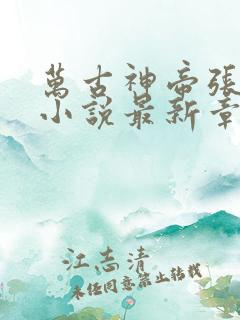 萬古神帝張
小說最新章
江志清
未经同意禁止转载